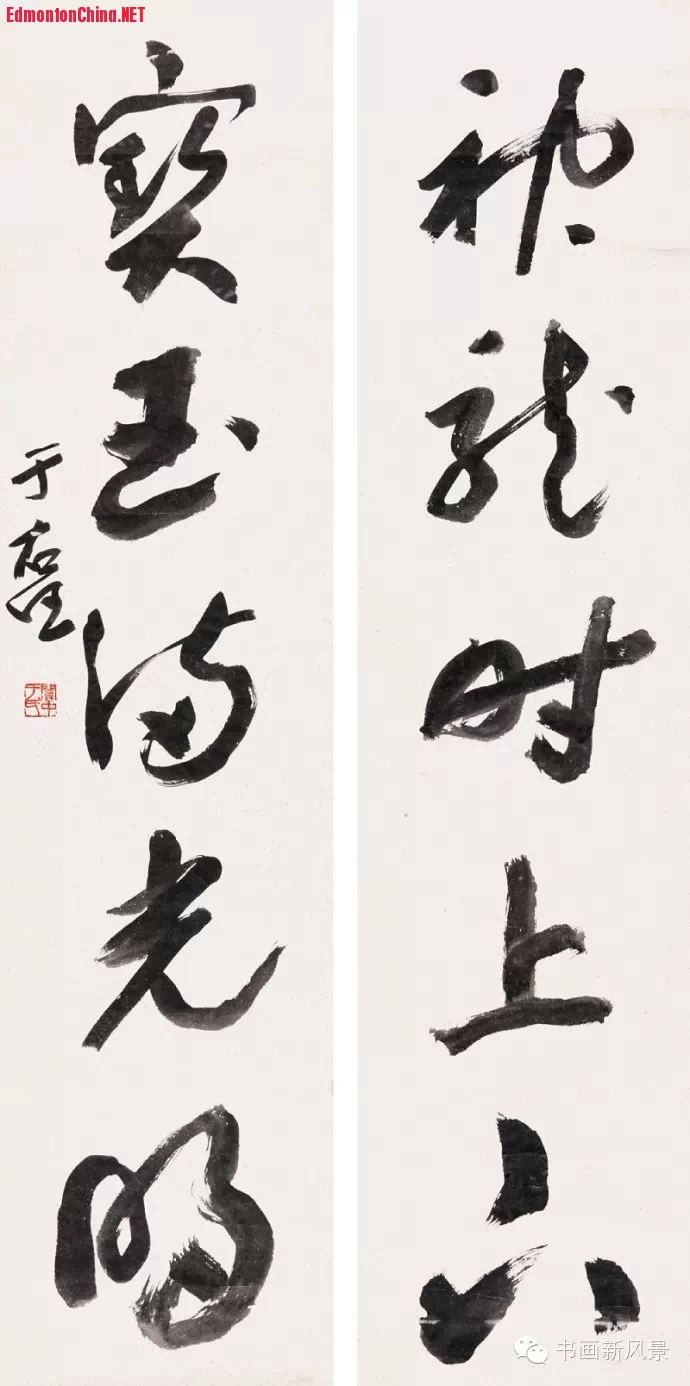 EdmontonChina.NET
神龍時上下
寶玉光明
于右任
關中于氏
书画新风景